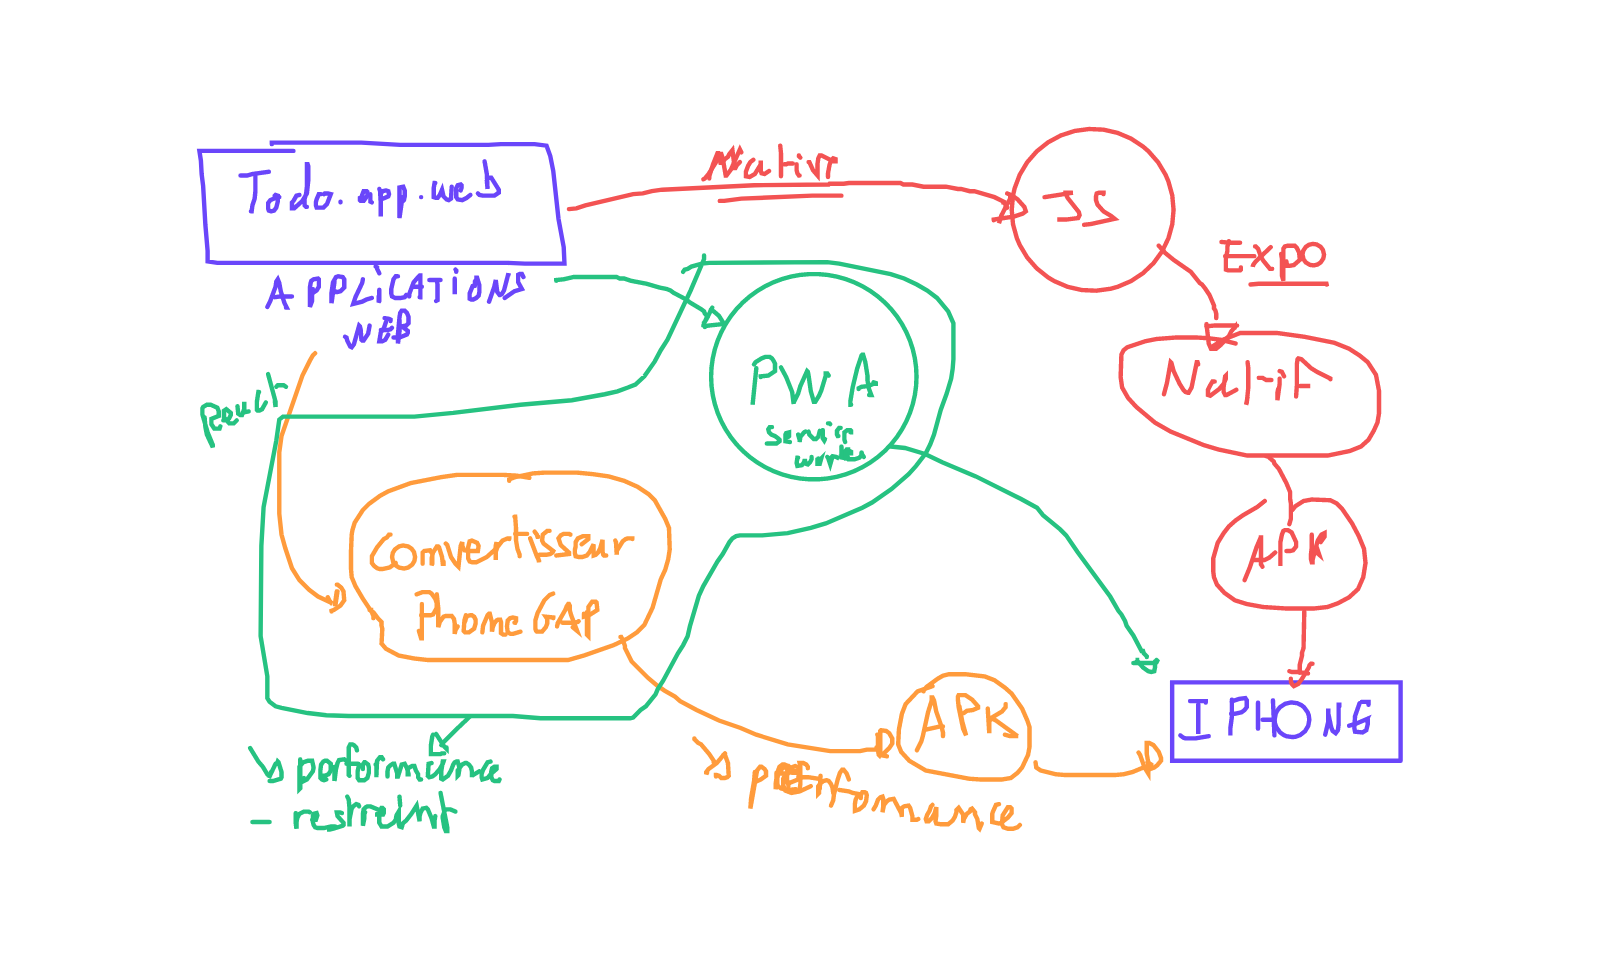 Todo.app.web
APPLICATIONS
WEB
Native
JS
Expo
Natif
APK
PWA
service
worker
Convertisseur
PhoneGAP
APK
IPHONE
↘ performance
- restreint
↘ performance